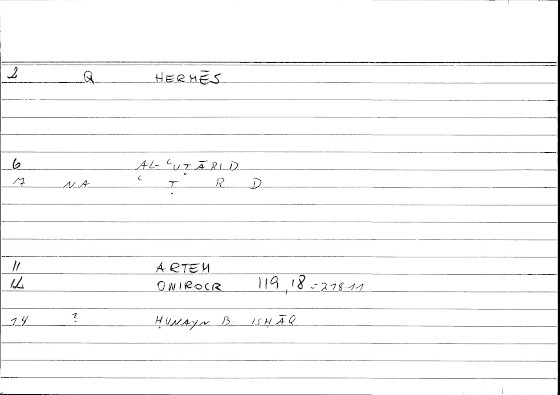 2 Q HERMĒS
6 AL-ʿUṬĀRID
7 NA ʿ Ṭ R D
11 ARTEM
12 ONIROCR 119,18 = 218 11
14 ? ḤUNAYN B. ISḤĀQ